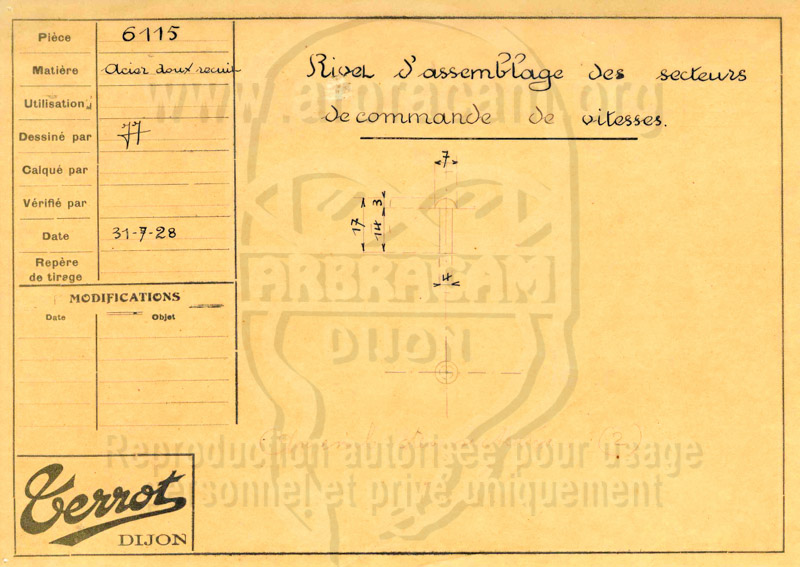 Pièce 6115
Matière Acier doux recuit
Utilisation
Dessiné par
Calqué par
Vérifié par
Date 31-7-28
Repère
de tirage
MODIFICATIONS
Date Objet
Rivet d'assemblage des secteurs
de commande de vitesses.
7
3
17 14
4
www.arbracam.org
ARBRACAM
DIJON
Reproduction autorisée pour usage
personnel et privé uniquement
Terrot
DIJON